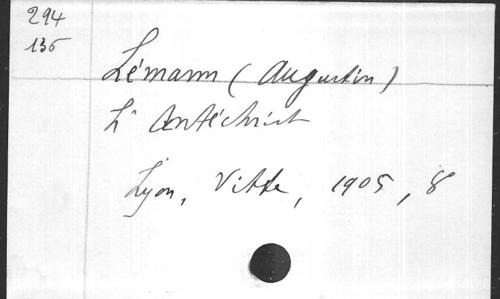 294
136
Lémann (Augustin)
L'Antéchrist
Lyon, Vitte, 1905, 8°